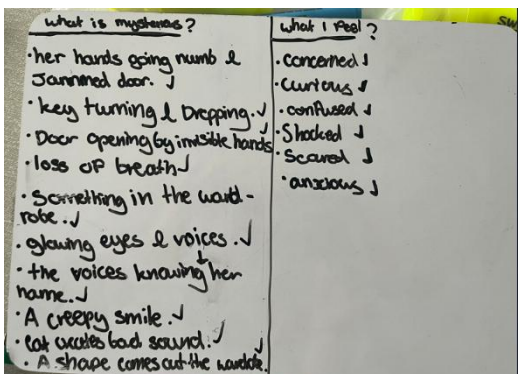 what is mysterious?
• her hands going numb &
Jammed door. ✓
• key turning & Dropping. ✓
• Door opening by invisible hands ✓
• loss of breath ✓
• Something in the ward-
robe. ✓
• glowing eyes & voices. ✓
• the voices knowing her
name. ✓
• A creepy smile. ✓
• cat creates bad sound. ✓
• A shape comes out the wardrobe. ✓
what I feel?
• concerned ✓
• curious ✓
• confused ✓
• Shocked ✓
• Scared ✓
• anxious ✓